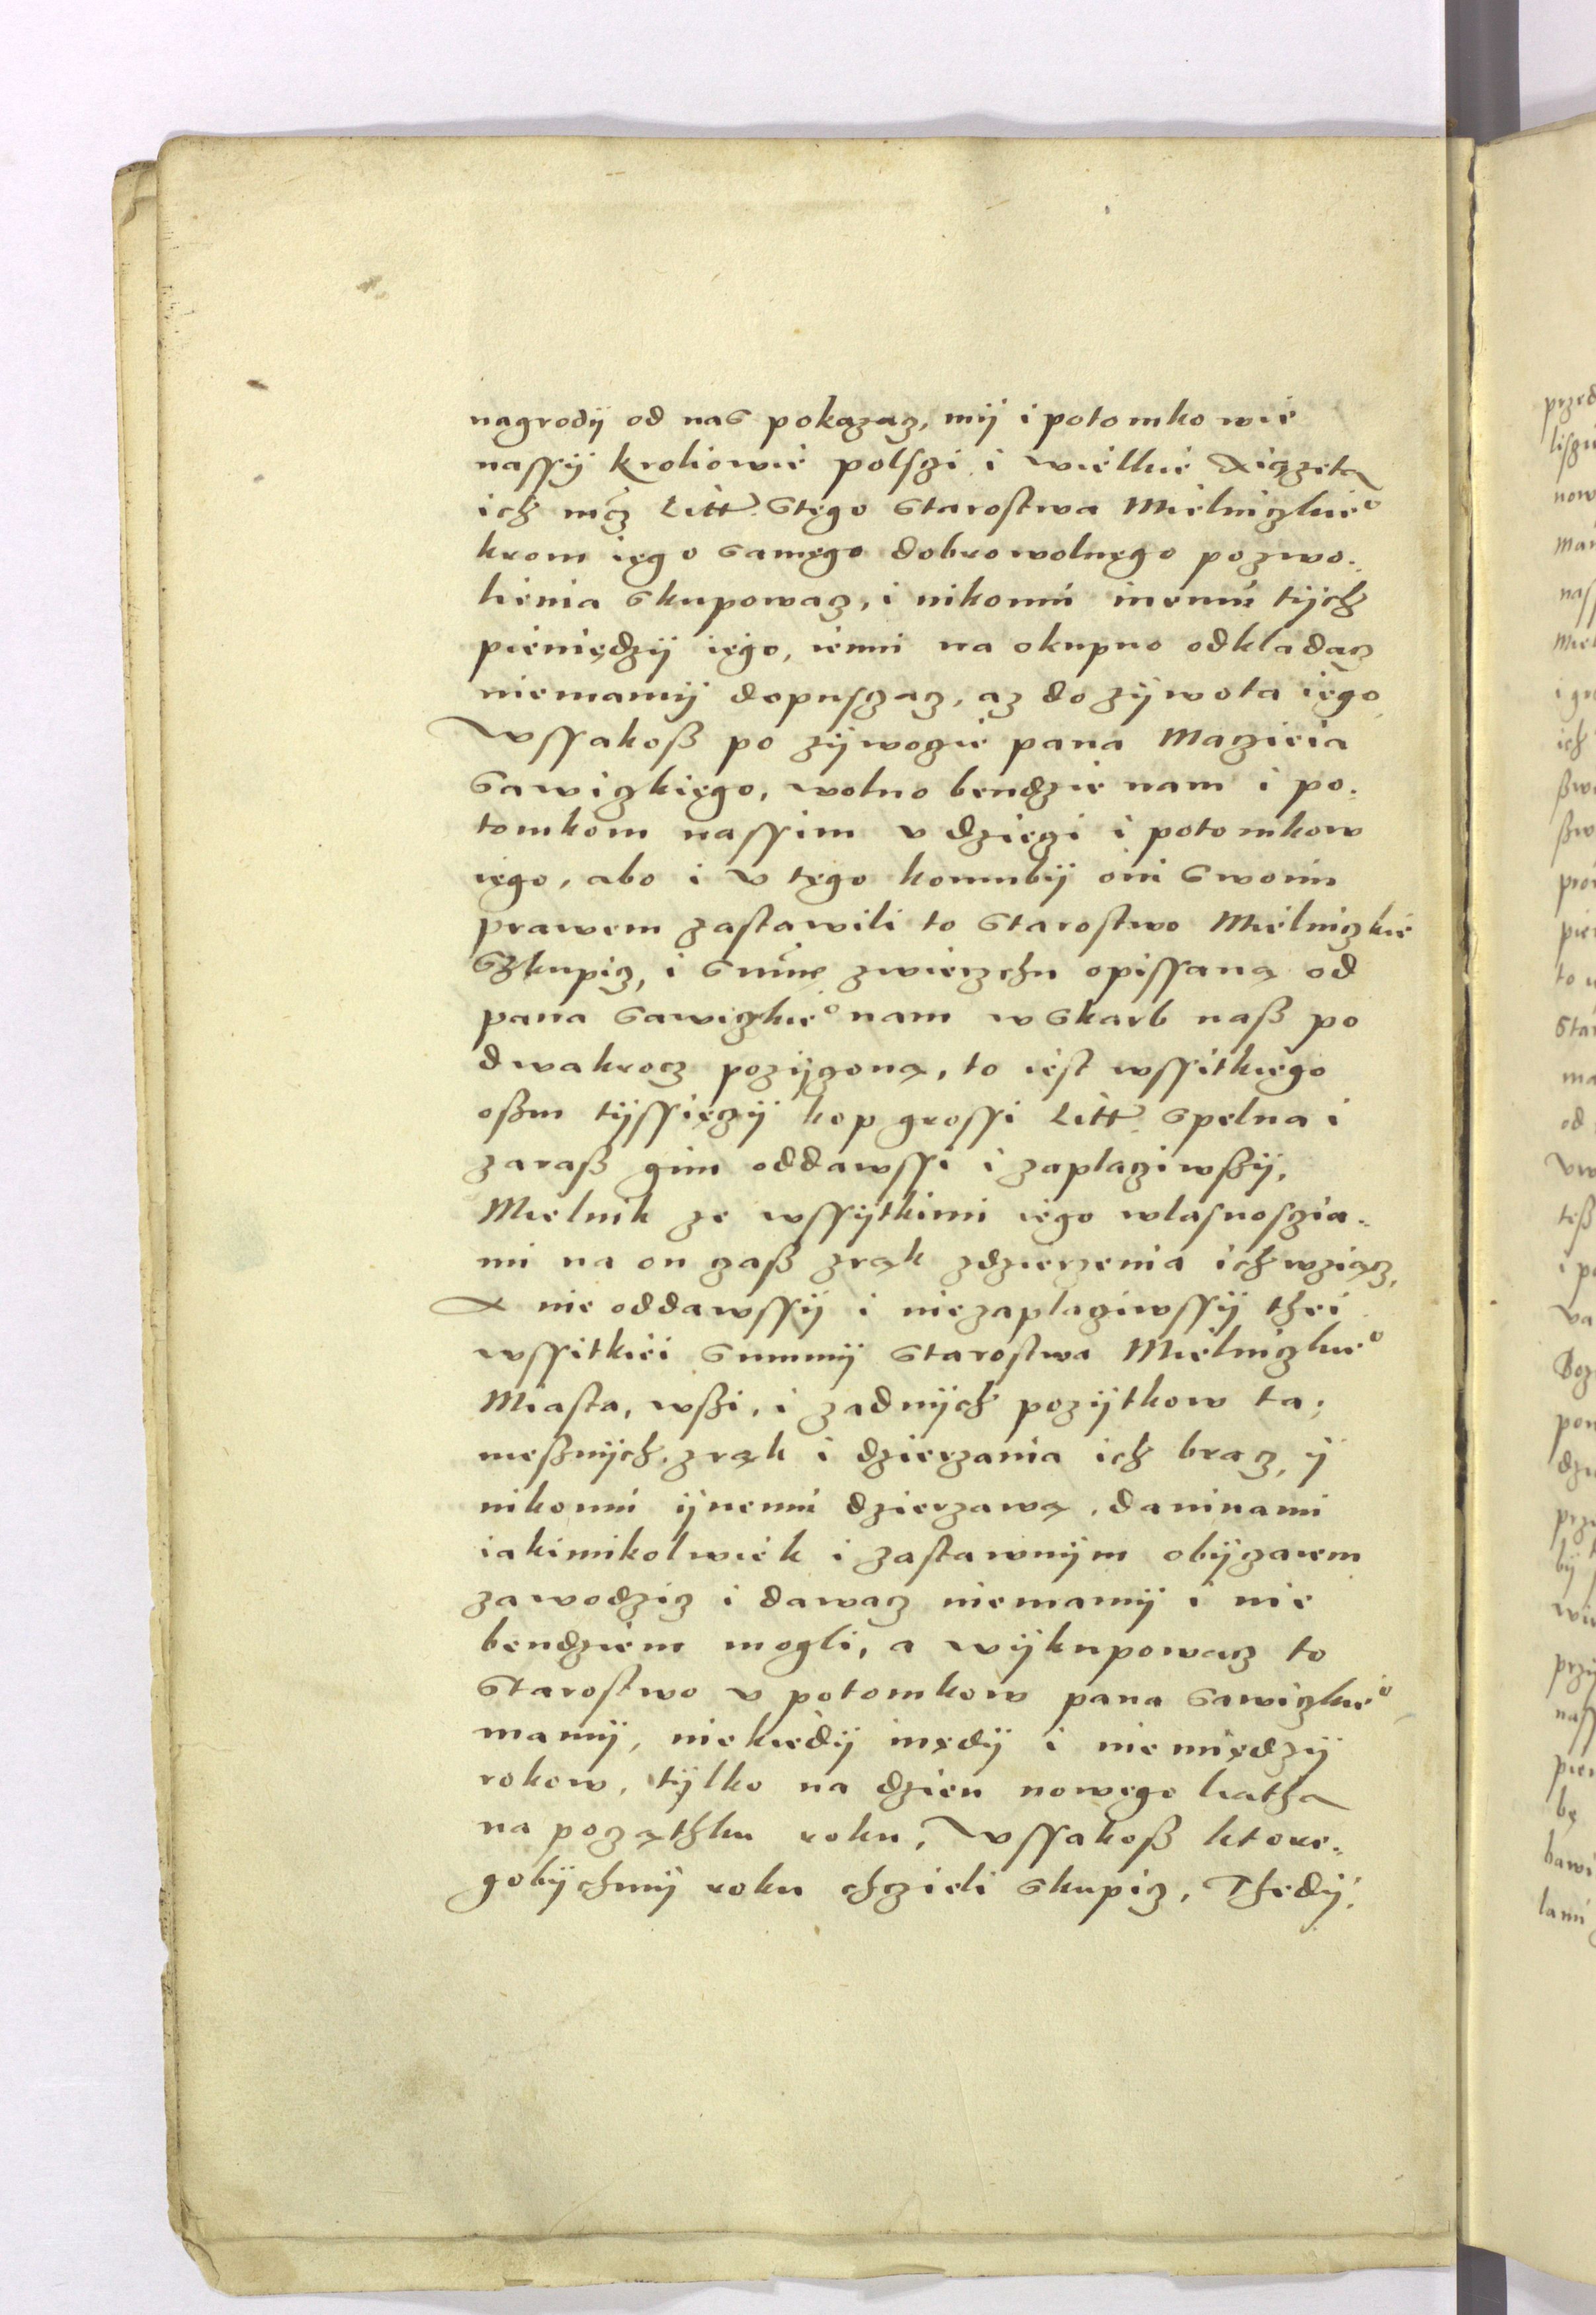 nagrody od nas pokazacz, my i potomkowie
nassy kroliowie polsczi i wielkie Xiązeta
ich mcz Litt. stego starostwa Mielniczkie⁰
krom iego samego dobrowolnego pozwo„
lienia skupowacz, i nikomu inemu tych
pieniędzy iego, iemu na okupno odkladacz
niemamy dopusczacz, az do zywota iego
Wssakoß po zywoczie pana Maczieia
Sawiczkiego, wolno bendzie nam i po„
tomkom nassim v dzieczi i potomkow
iego, abo i v tego komuby oni swoim
prawem zastawili to starostwo Mielniczkie
Szkupicz, i sumę zwierzchu opissaną od
pana Sawiczkie⁰ nam w skarb naß po
dwakrocz pozyczoną, to iest wssitkiego
oßm tyssięczy kop grossi Litt. spelna i
zaraß gim oddawssi i zaplacziwßy,
Mielnik ze wssytkimi iego wlasnosczia„
mi na on czaß zrąk zdzierzenia ich wziącz,
A nie oddawssy i niezaplacziwssy thei
wssitkiei summy starostwa Mielniczkie⁰
Miasta, wßi, i zadnych pozytkow ta„
meßnych, zrąk i dzierzania ich bracz, y
nikomu ynemu dzierzawą, daninami
iakimikolwiek i zastawnym obyczaiem
zawodzicz i dawacz niemamy i nie
bendziem mogli, a wykupowacz to
Starostwo v potomkow pana Sawiczkie⁰
mamy, niekiedy inędy i niemiędzy
rokow, tylko na dzien nowego liatha
na począthku roku, Wssakoß ktore„
gobychmy roku chczieli skupicz, Thedy,